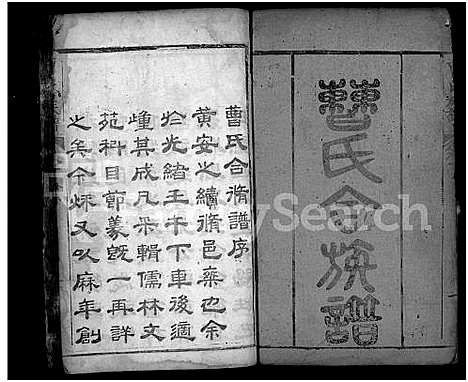 曹氏合族譜
曹氏合脩譜序
黄安之續脩邑乘也余
於光緒壬午下車後適
種其成凡采輯儒林文
苑科目節義既一再詳
之矣今秌又以麻年創
FamilySearch